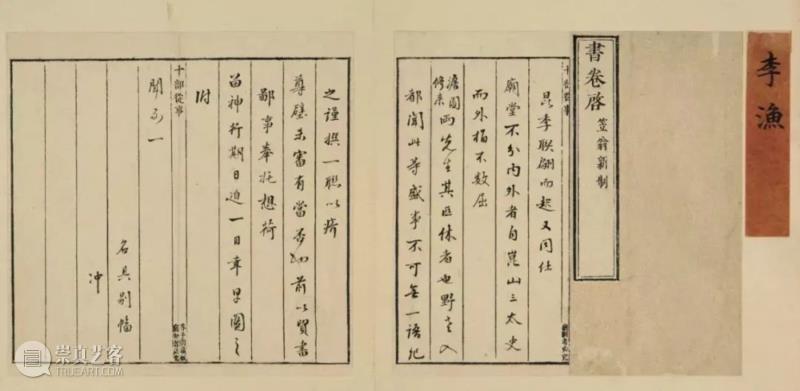 李漁
書卷啓 笠翁新制
昆季聯翩而起又同仕
廟堂不分内外者自崑山三太史
而外指不數屈
澹園
修來
兩先生其匹休者也野老入
都聞此等盛事不可無一語紀
之謹撰一聯以
尊壁未審有當否 前以賢書
鄙事奉托想荷
十部從事
留神行期日迫一日幸早圖之
附
聞不一
名具别幅
冲
崇真艺客
TRUEART.COM